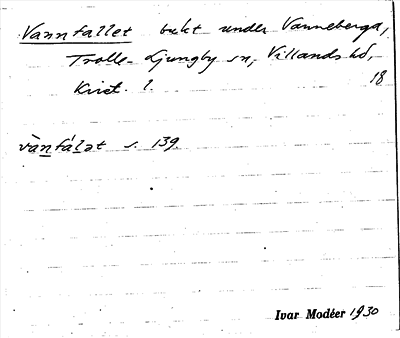 Vannfallet bukt under Vanneberga,
Trolle-Ljungby sn, Villands hd,
Krist. l. 18
vànfálət s. 139.
Ivar Modéer 1930